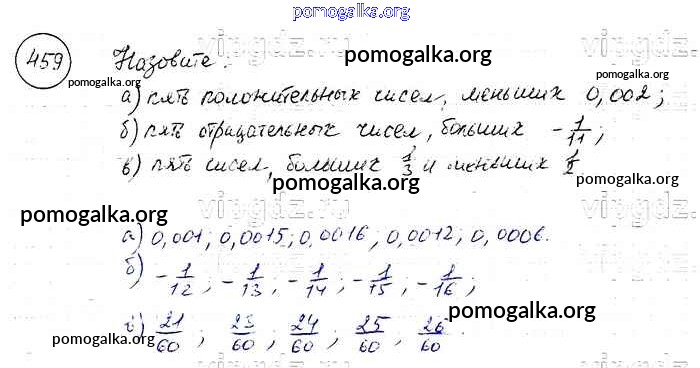 pomogalka.org
459 Назовите:
pomogalka.org
pomogalka.org
а) пять положительных чисел, меньших 0,002;
б) пять отрицательных чисел, больших -1/11;
в) пять чисел, больших 1/3 и меньших 1/2
pomogalka.org
pomogalka.org
pomogalka.org
а) 0,001; 0,0015; 0,0016, 0,0012; 0,0006.
б) -1/12; -1/13; -1/14; -1/15; -1/16;
pomogalka.org
в) 21/60; 23/60; 24/60; 25/60; 26/60.
pomogalka.org
pomogalka.org